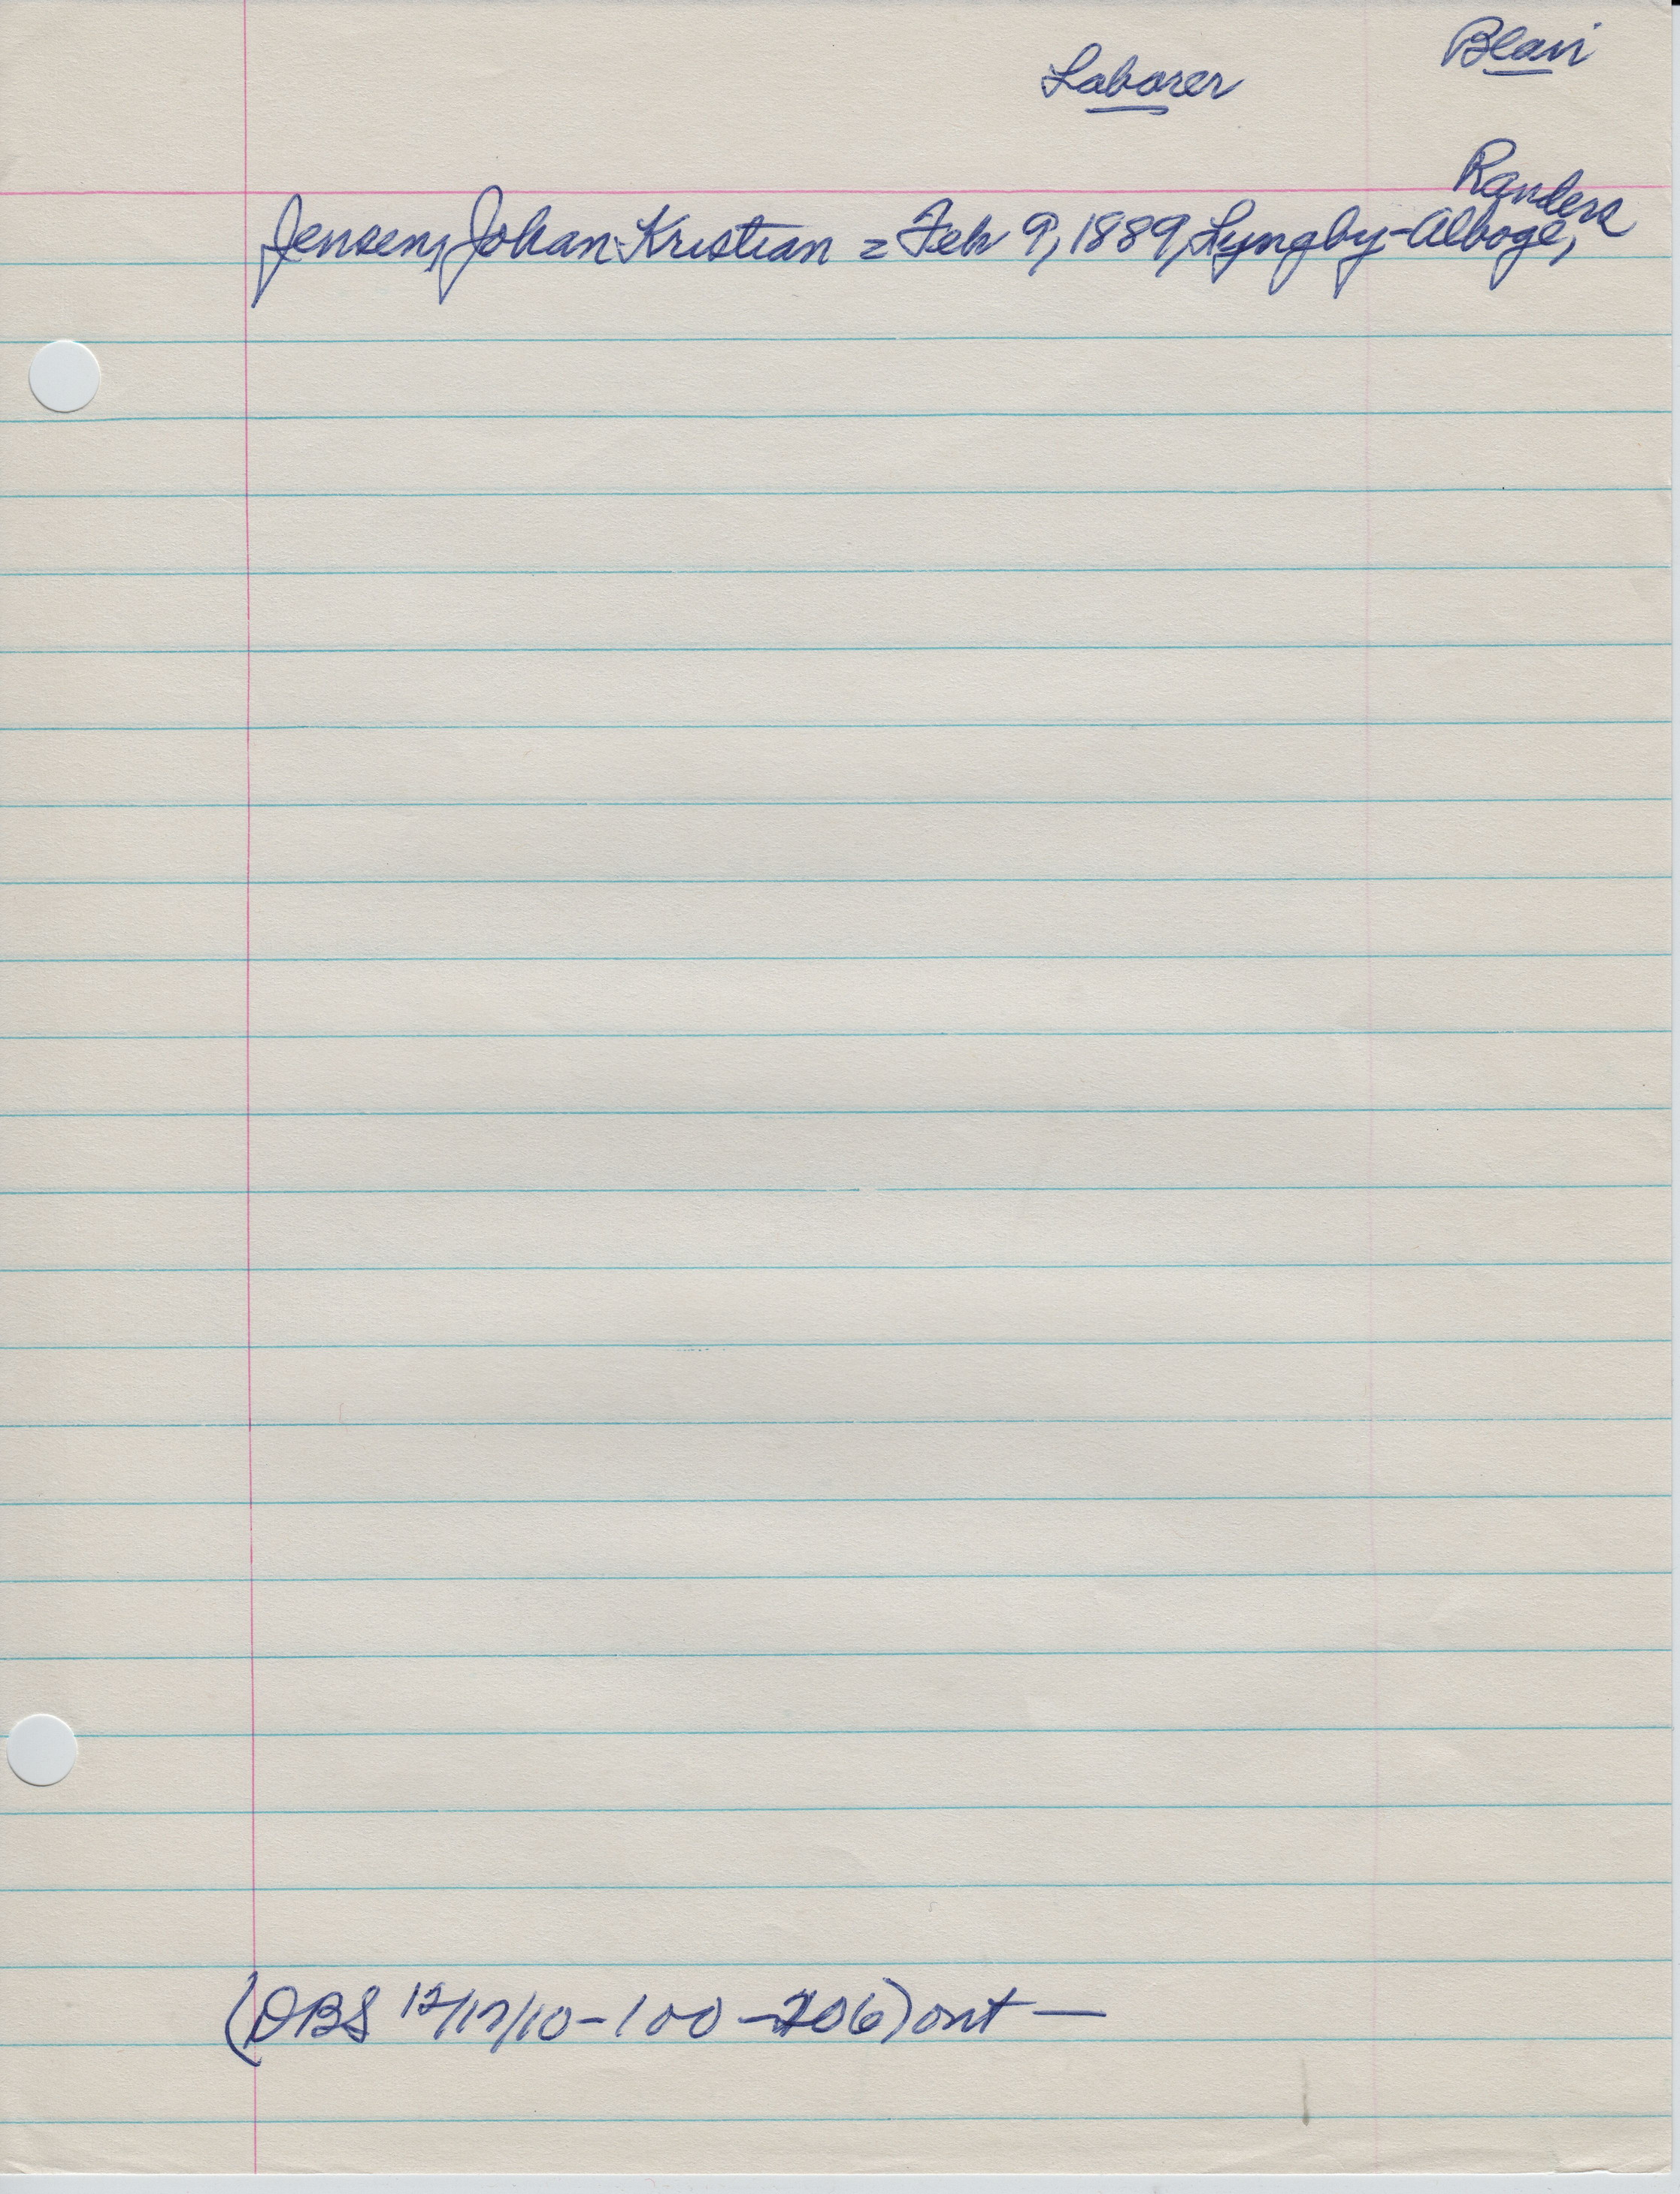 Blair
Laborer
Randers
Jensen, Johan Kristian = Feb 9, 1889, Lyngby-Alboge,
(DBS 12/17/10-100-206) ont —